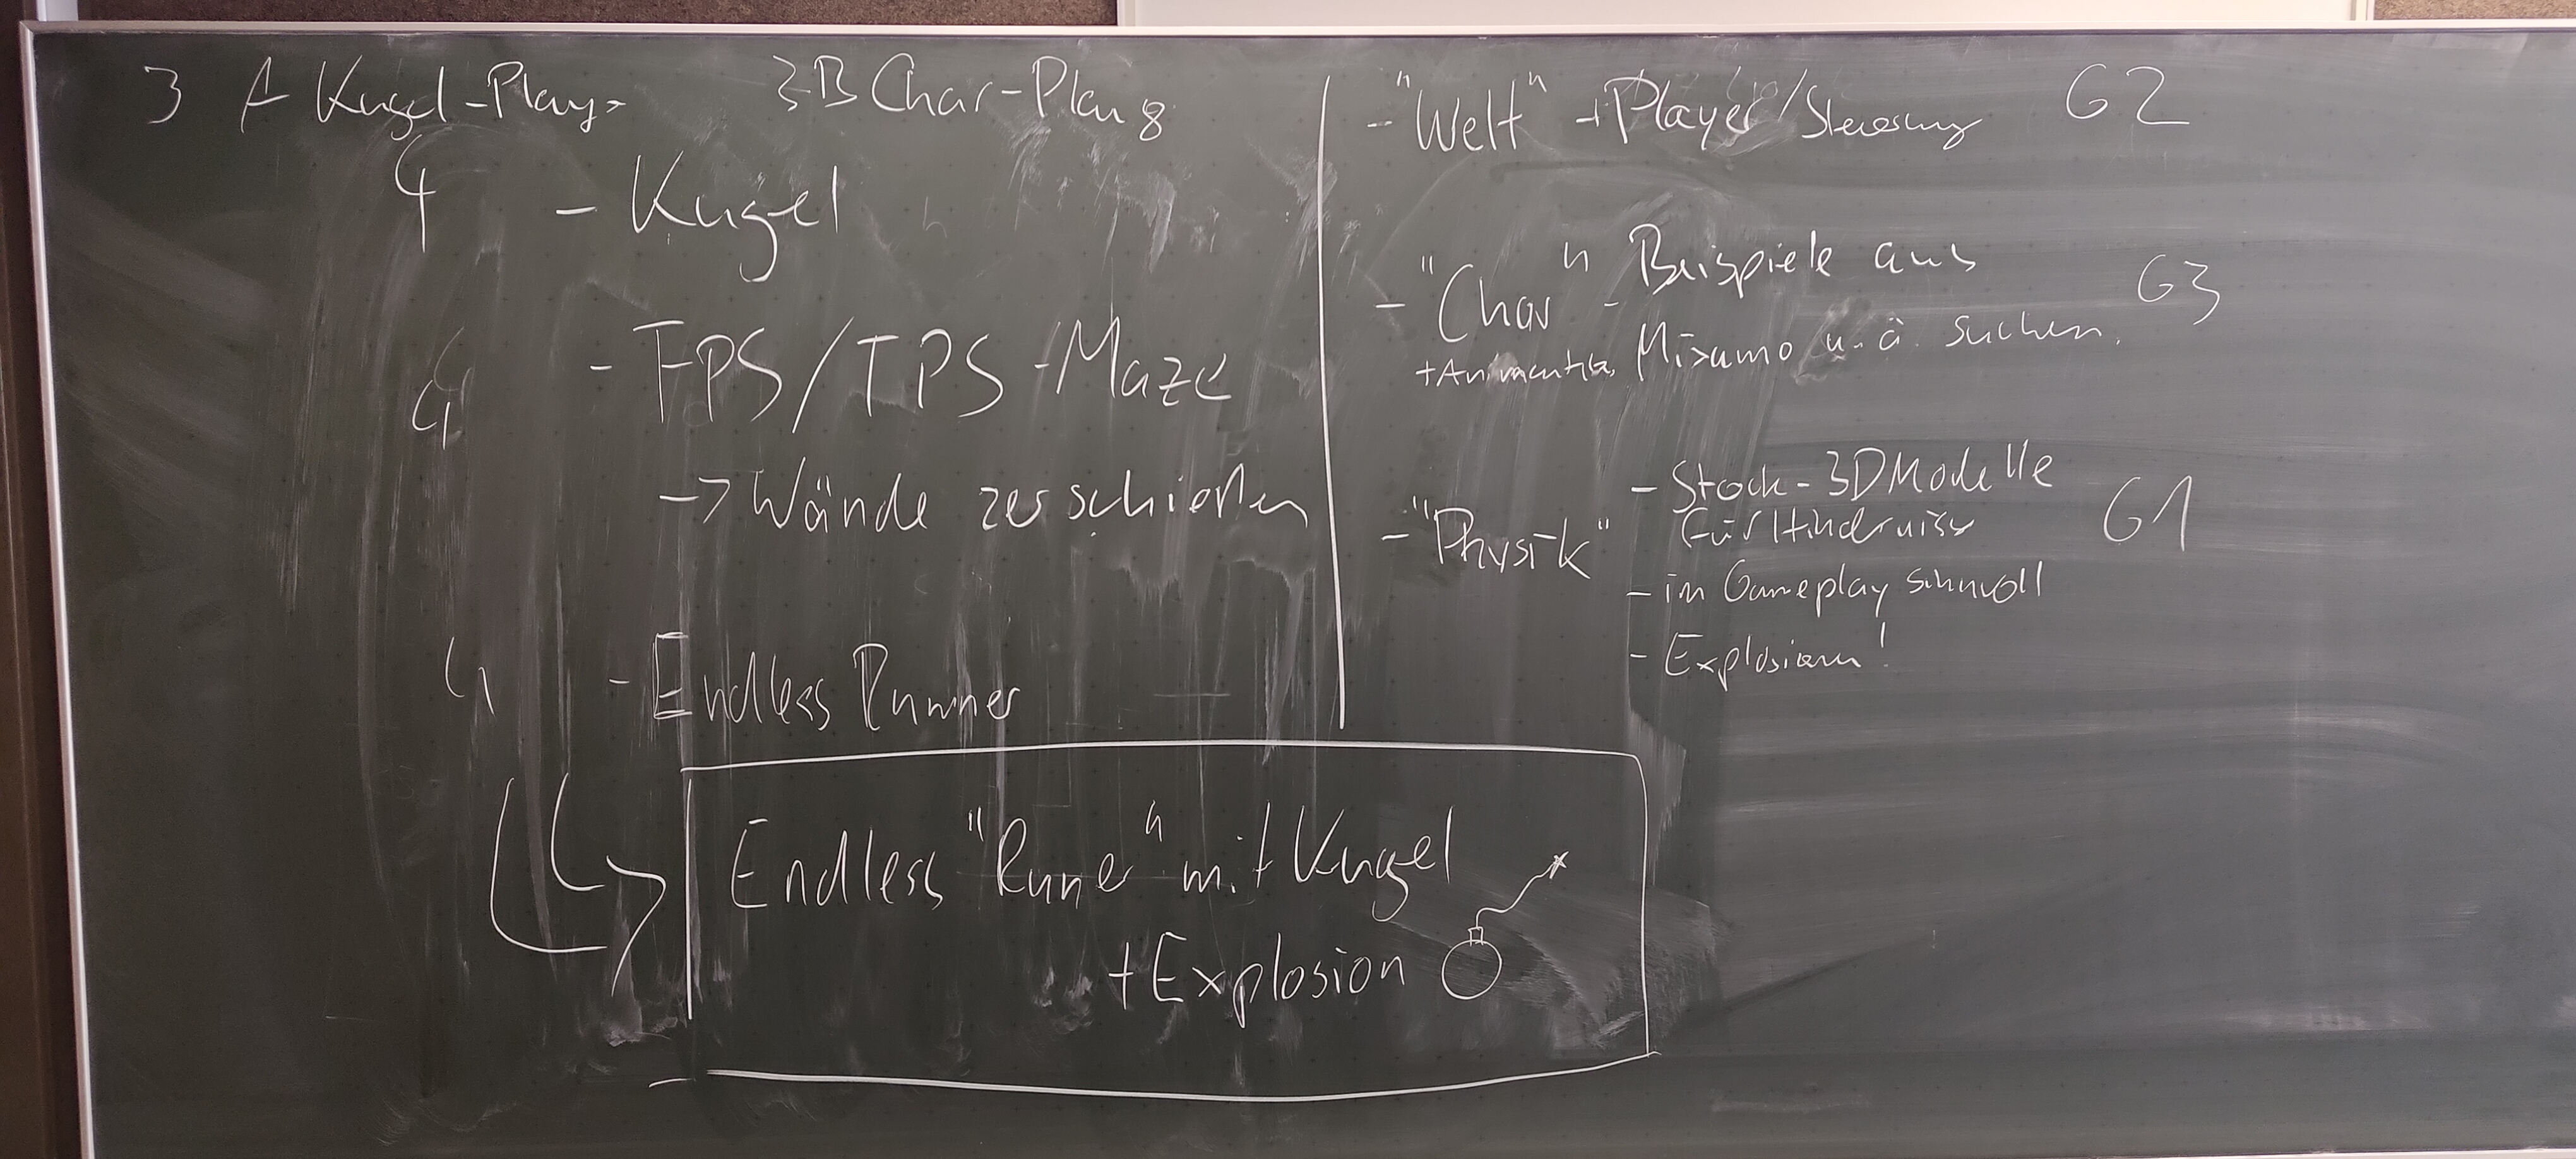 3 A Kugel-Play 7
3B Char-Play 8
4 - Kugel
4 - FPS/TPS-Maze
-> Wände zerschießen
4 - Endless Runner
Endless "Runner" mit Kugel
+ Explosion
- "Welt" + Player/Steuerung G2
- "Char" - Beispiele aus G3
+ Animation Mixamo u.ä. suchen.
- "Physik" - Stock-3DModelle G1
für Hindernisse
- im Gameplay sinnvoll
- Explosion!